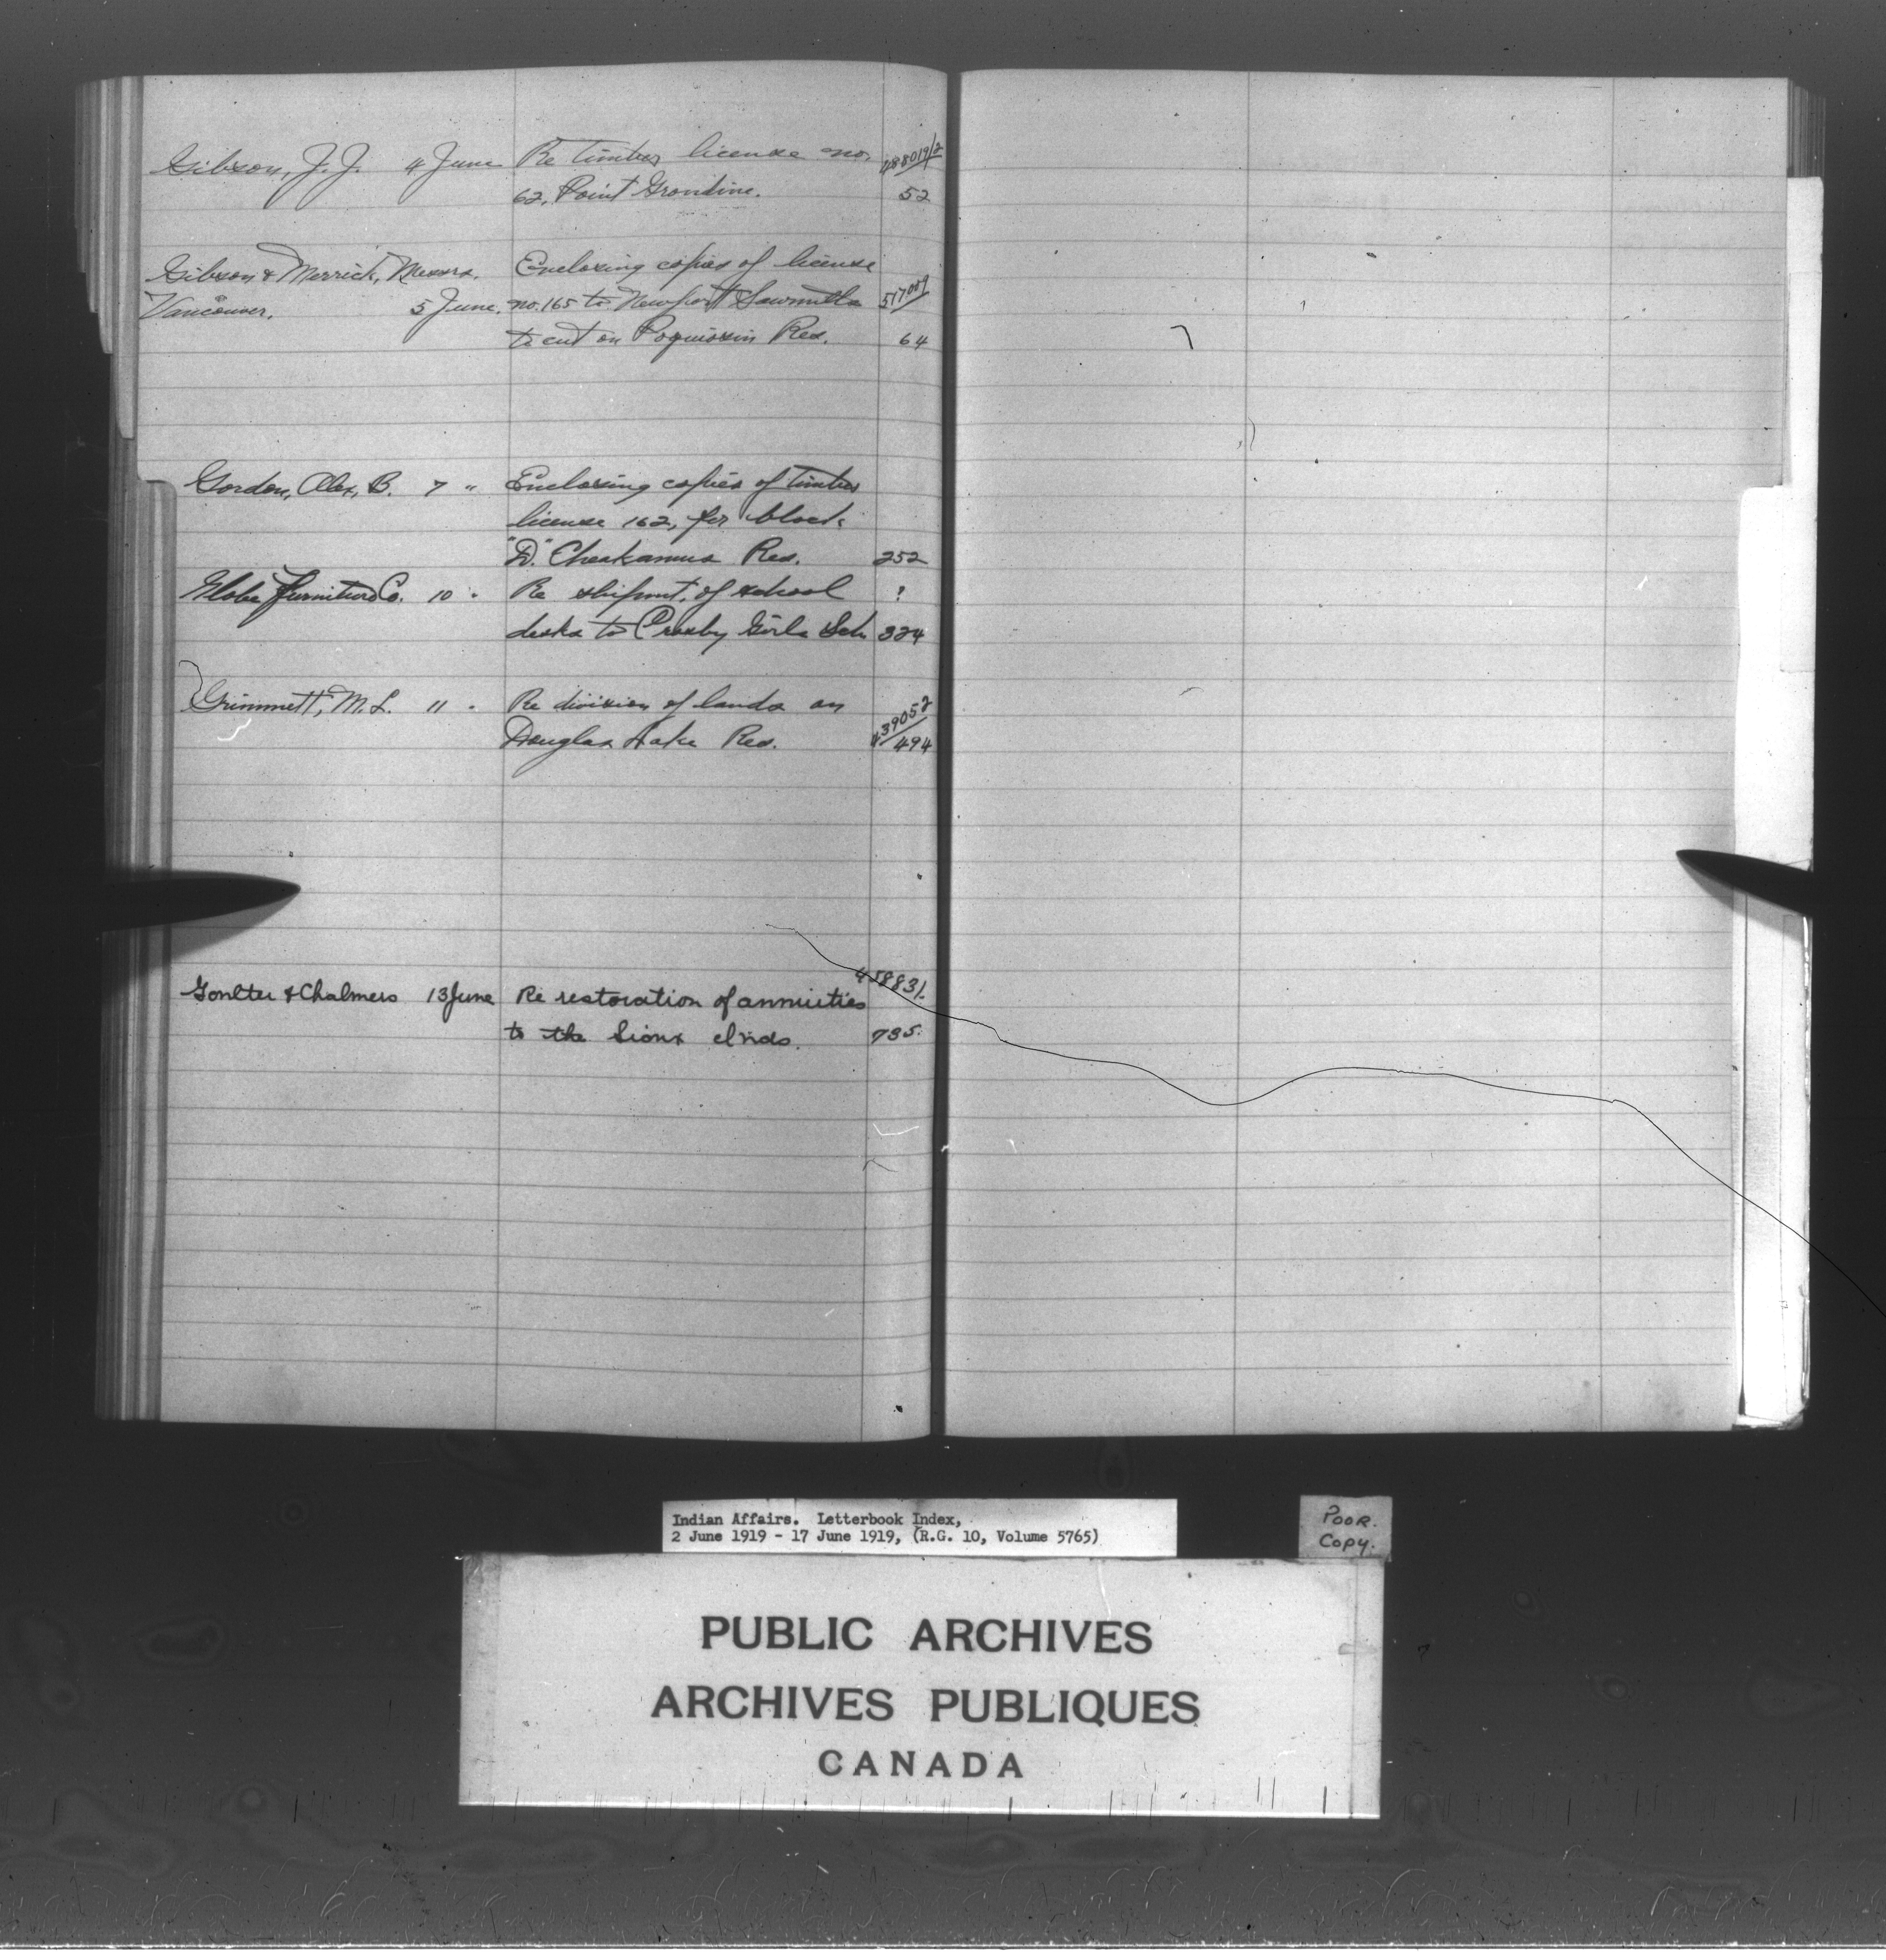 Gibson, J. J. 4 June Re timber license no. 488019/2
62, Point Grondine. 52
Gibson & Merrick, Messrs. Enclosing copies of license
Vancouver. 5 June. no. 165 to Newport Sawmills 517009/
to cut on Poquiosin Res. 64
Gordon, Alex, B. 7 " Enclosing copies of timber
license 162, for block
"D" Cheakamus Res. 252
Globe Furniture Co. 10 " Re shipmt. of school ?
desks to Crosby Girls Sch 324
Grimmett, M. L. 11 " Re division of lands on 439052
Douglas Lake Res. 494
458831.
Goulter & Chalmers 13 June Re restoration of annuities
to the Sioux Inds. 735.
Indian Affairs. Letterbook Index,
2 June 1919 - 17 June 1919, (R.G. 10, Volume 5765)
POOR.
Copy.
PUBLIC ARCHIVES
ARCHIVES PUBLIQUES
CANADA